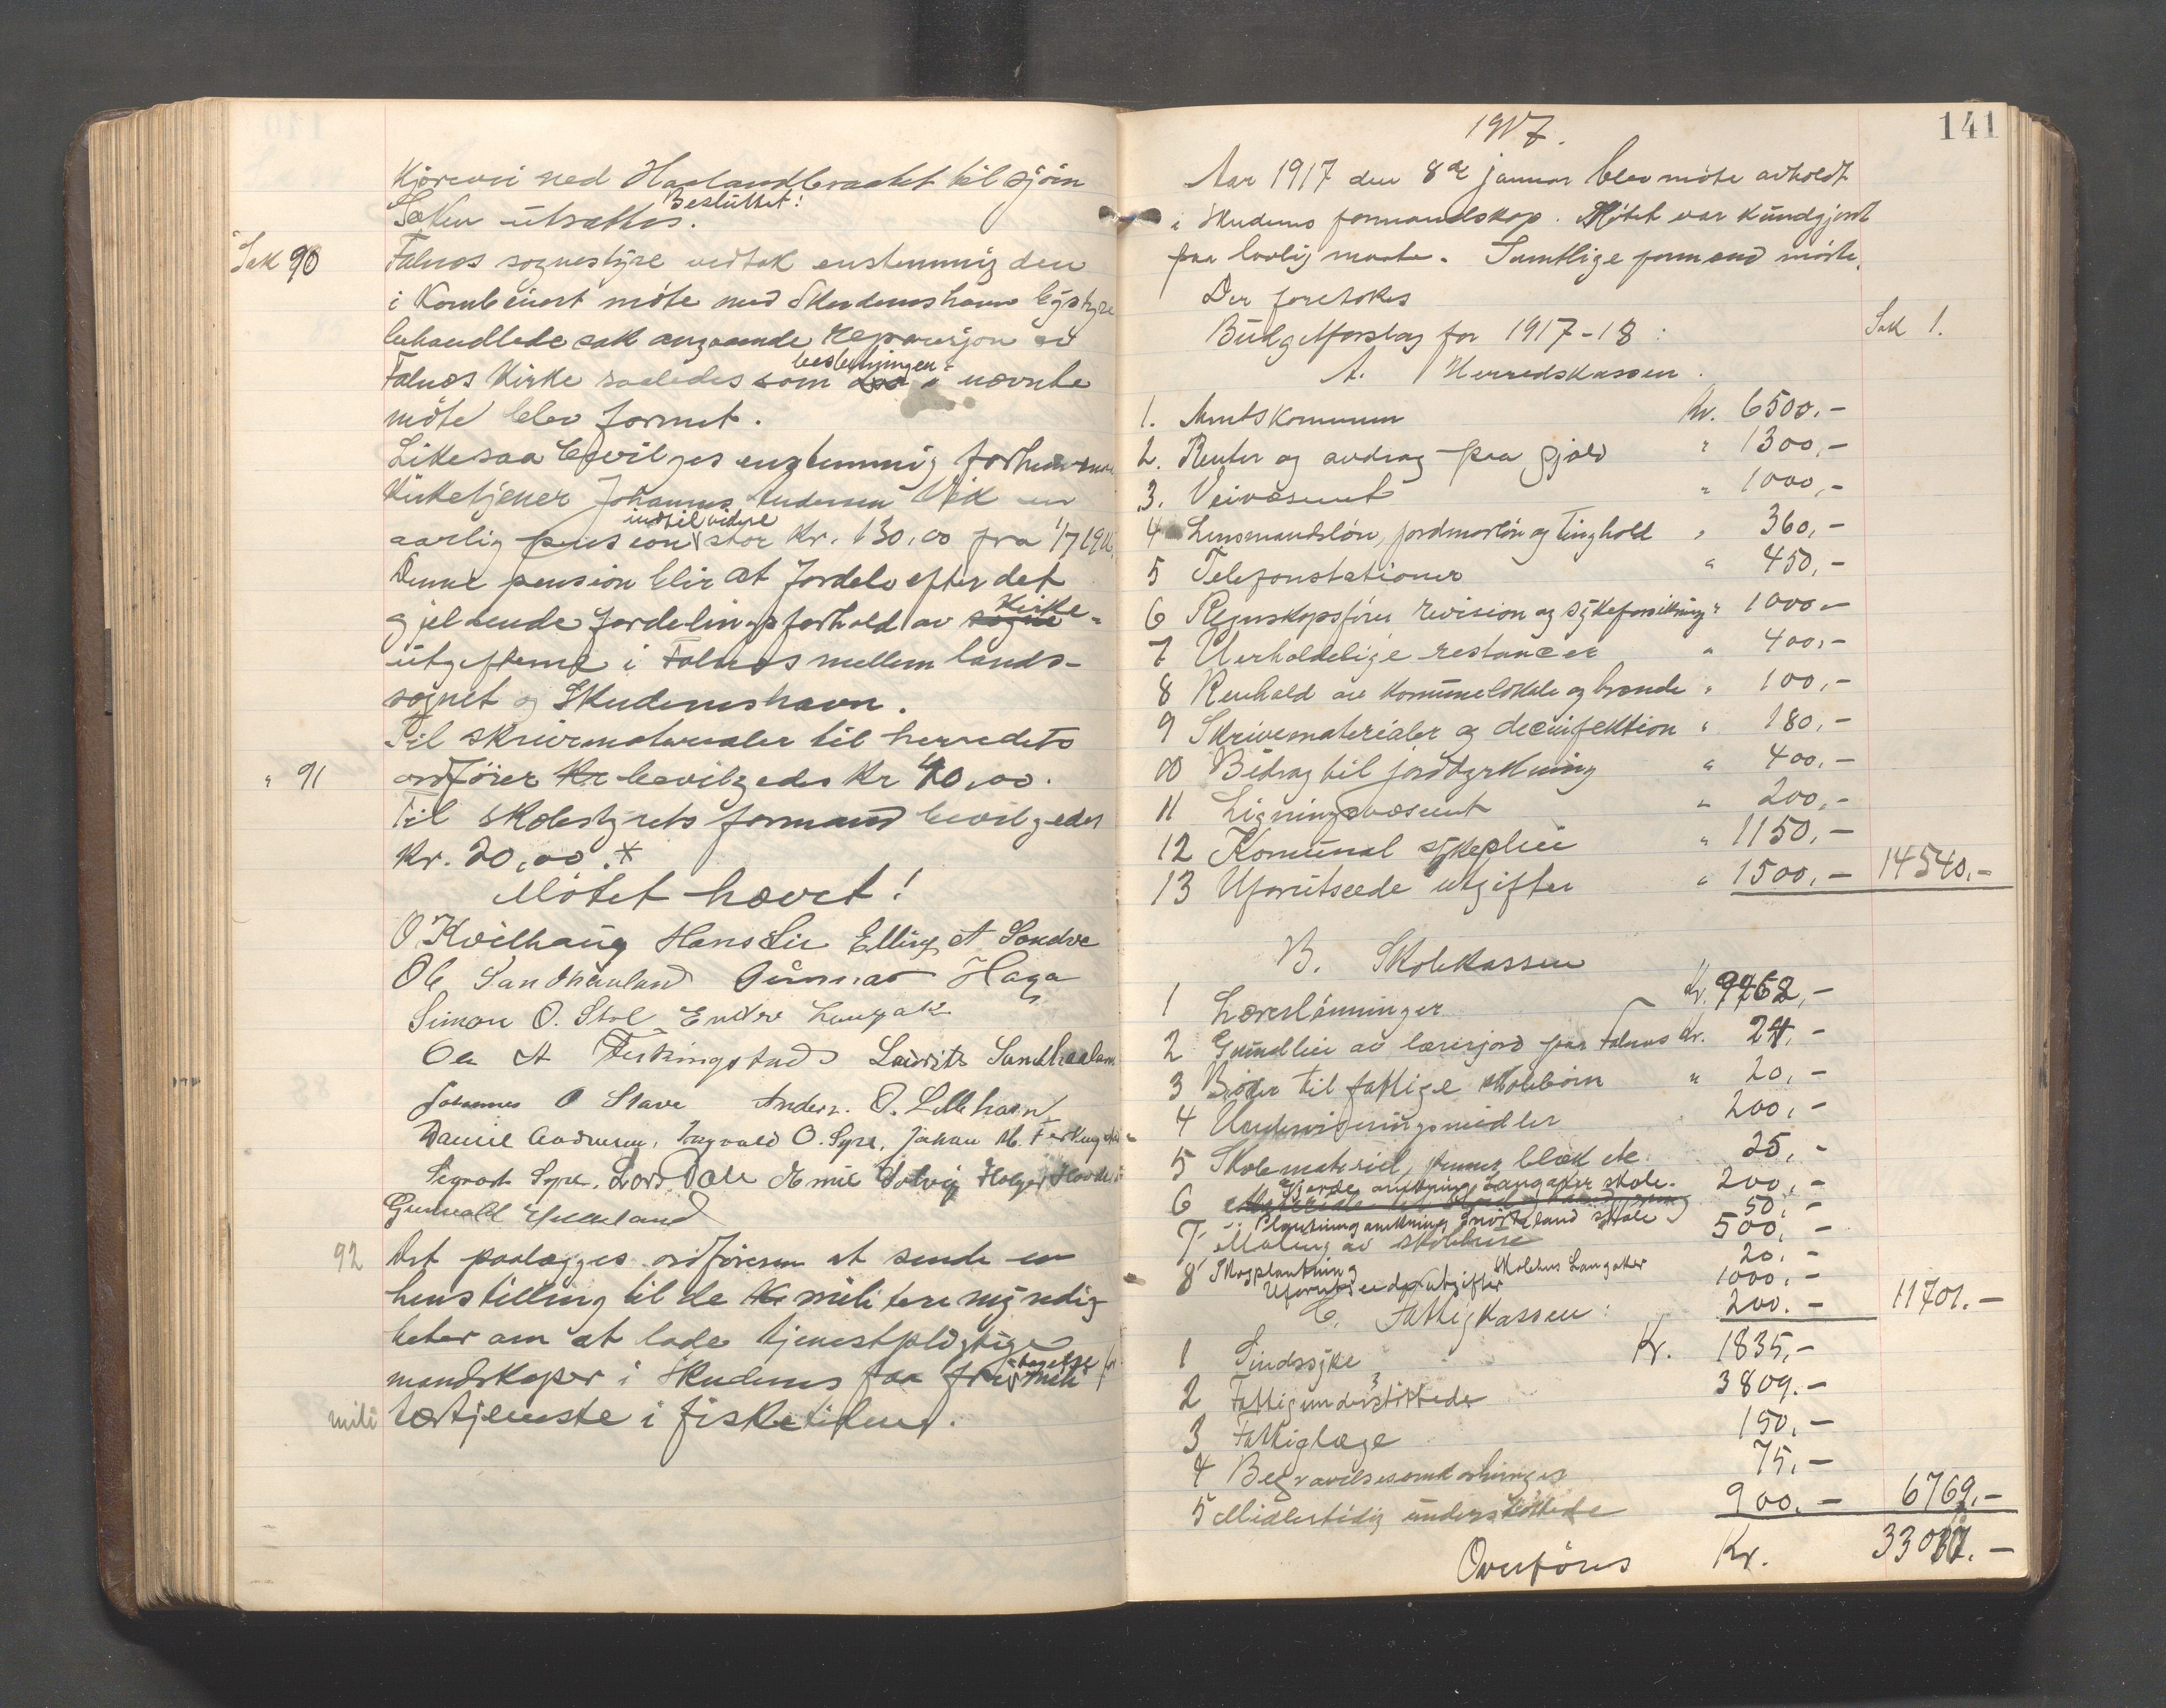 Kjörevei ned Haalandbraatet til sjöen
Besluttet:
Saken utsattes.
Sak 90 Falnes sognestyre vedtok enstemmig den
i Kombinert möte med Skudeneshavn bystyre
behandlede sak angaaende reparasjon av
Falnes Kirke saaledes som beslutningen i nævnte
möte blev formet.
Likesaa bevilges enstemmig forhenværende
Kirketjener Johannes Andersen Vik en
aarlig pension indtil videre stor Kr. 130,00 fra 1/7 1916.
Denne pension blir at fordele efter det
gjeldende fordelingsforhold av sogne Kirke-
utgifterne i Falnes mellem lands-
sognet og Skudeneshavn.
Til skrivematerialer til herredets
" 91 ordförer Kr bevilgedes Kr 40,00.
Til skolestyrets formand bevilgedes
Kr. 20,00. x
Mötet hævet!
O Kvilhaug Hans Lie Elling A Sandve
Ole Sandhaaland Gunnar Haga
Simon O. Stol Endre Langaker
Ole A Ferkingstad Lauritz Sandhaaland
Johannes O Stave Anders. O. Lillehavn
Daniel Andersen, Ragvald O. Syre, Johan M. Ferkingstad
Sigvart Syre. Lars Dale Emil Solvig Holger Hovdesen
Gunvald Yrkeland
92 Det paalægges ordföreren at sende en
henstilling til de militære myndig-
heter om at lade tjenestpligtige
mandskaper i Skudenes faa fritagelse for
militærtjeneste i fisketiden.
141
1917.
Aar 1917 den 8de januar blev möte avholdt
i Skudenes formandskap. Mötet var kundgjort
paa lovlig maate. Samtlige formænd mötte.
Der foretokes
Budgetforslag for 1917-18: Sak 1.
A. Herredskassen.
1. Amtskommunen Kr. 6500,-
2. Renter og avdrag paa gjæld " 1300,-
3. Veivæsenet " 1000,-
4 Lensmandslön, jordmorlön og Tinghold " 360,-
5 Telefonstationer " 450,-
6 Regnskapsförer revision og sykeforsikring " 1000-
7 Uerholdelige restancer " 400,-
8 Renhold av komunelokale og brænde " 100,-
9 Skrivematerialer og decinfektion " 180,-
10 Bidrag til jorddyrkning " 400,-
11 Ligningsvæsenet " 200,-
12 Komunal sykepleie " 1150,-
13 Uforutseede utgifter " 1500,- 14540,-
B. Skolekassen
1 Lærerlönninger Kr. 9462,-
2 Grundleie av lærerjord paa Falnes Kr. 24,-
3 Böker til fattige skolebörn " 20,-
4 Undervisningsmidler 200,-
5 Skolemateriel, penner, blæk etc. 25,-
6 Gjerde omkring Langaker skole. 200,-
7 Plantning omkring Snorteland skole 50,-
Maling av skolehuse 500,-
8 Skogplantning 20,-
Skolehus Langaker 1000,-
Uforutseede utgifter 200.- 11701.-
C. Fattigkassen:
1 Sindssyke Kr. 1835,-
2 Fattigunderstöttede 3809.-
3 Fattiglæge 150,-
4 Begravelsesomkostninger 75,-
5 Midlertidig understöttede 900.- 6769,-
Overföres Kr. 33010.-